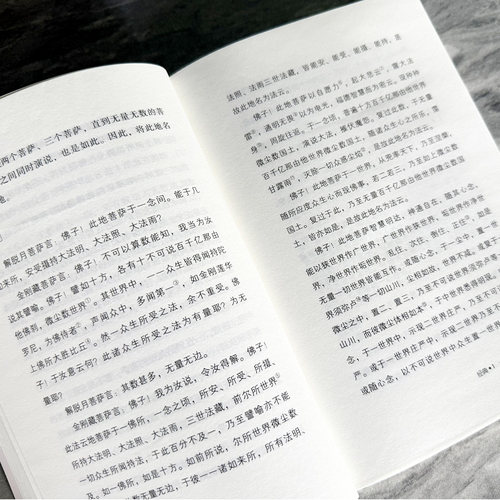 两个菩萨、三个菩萨，直到无量无数的菩
之间同时演说，也是如此。因此，将此地名
解脱月菩萨言：佛子！此地菩萨于一念间，能于几
如来所，安受摄持大法明、大法照、大法雨？
金刚藏菩萨言：佛子！不可以算数能知，我当为汝
说其譬喻。佛子！譬如十方，各有十不可说百千亿那由
他佛刹，微尘数世界。其世界中，一一众生皆得闻持陀
罗尼，为佛侍者，声闻众中，多闻第一，如金刚莲华
上佛所大胜比丘。然一众生所受之法，余不重受。佛
子！于汝意云何？此诸众生所受之法为有量耶？为无
量耶？
解脱月菩萨言：其数甚多，无量无边。
金刚藏菩萨言：佛子！我为汝说，令汝得解。佛子！
此法云地菩萨于一佛所，一念之顷，所安、所受、所摄、
所持大法明、大法照、大法雨，三世法藏，前尔所世界
一切众生所闻持法，于此百分不及一，乃至譬喻亦不能
及。如一佛所，如是十方。如前所说，尔所世界微尘数
数无量无边，于彼一一诸如来所，所有法明、
法照、法雨三世法藏，皆能安、能受、能摄、能持，是
故此地名为法云。
佛子！此地菩萨以自愿力，起大悲云，震大法
雷，通明无畏以为电光，福德智慧而为密云，现种种
身，周旋往返，于一念顷，普遍十方百千亿那由他世界
微尘数国土，演说大法，摧伏魔怨。复过此数，于无量
百千亿那由他世界微尘数国土，随诸众生心之所乐，霔
甘露雨，灭除一切众惑尘焰，是故此地名为法云。
佛子！此地菩萨于一世界，从兜率天下，乃至涅槃，
随所应度众生心而现佛事。若二若三，乃至如上微尘数
国土。复过于此，乃至无量百千亿那由他世界微尘数国
土，皆亦如是，是故此地名为法云。
佛子！此地菩萨智慧明达，神通自在，随其心念，
能以狭世界作广世界，广世界作狭世界，垢世界作净世
界，净世界作垢世界。乱住、次住、倒住、正住，如是
无量一切世界皆能互作。或随心念，于一尘中，置一世
界须弥卢等一切山川，尘相如故，世界不减。或复于一
微尘之中，置二、置三，乃至不可说世界须弥卢等一切
山川，而彼微尘体相如本，于中世界悉得明现。或随心
念，于一世界中，示现二世界庄严，乃至不可说世界庄
严。或于一世界庄严中，示现二世界乃至不可说世界
或随心念，以不可说世界中众生置一世界
经典